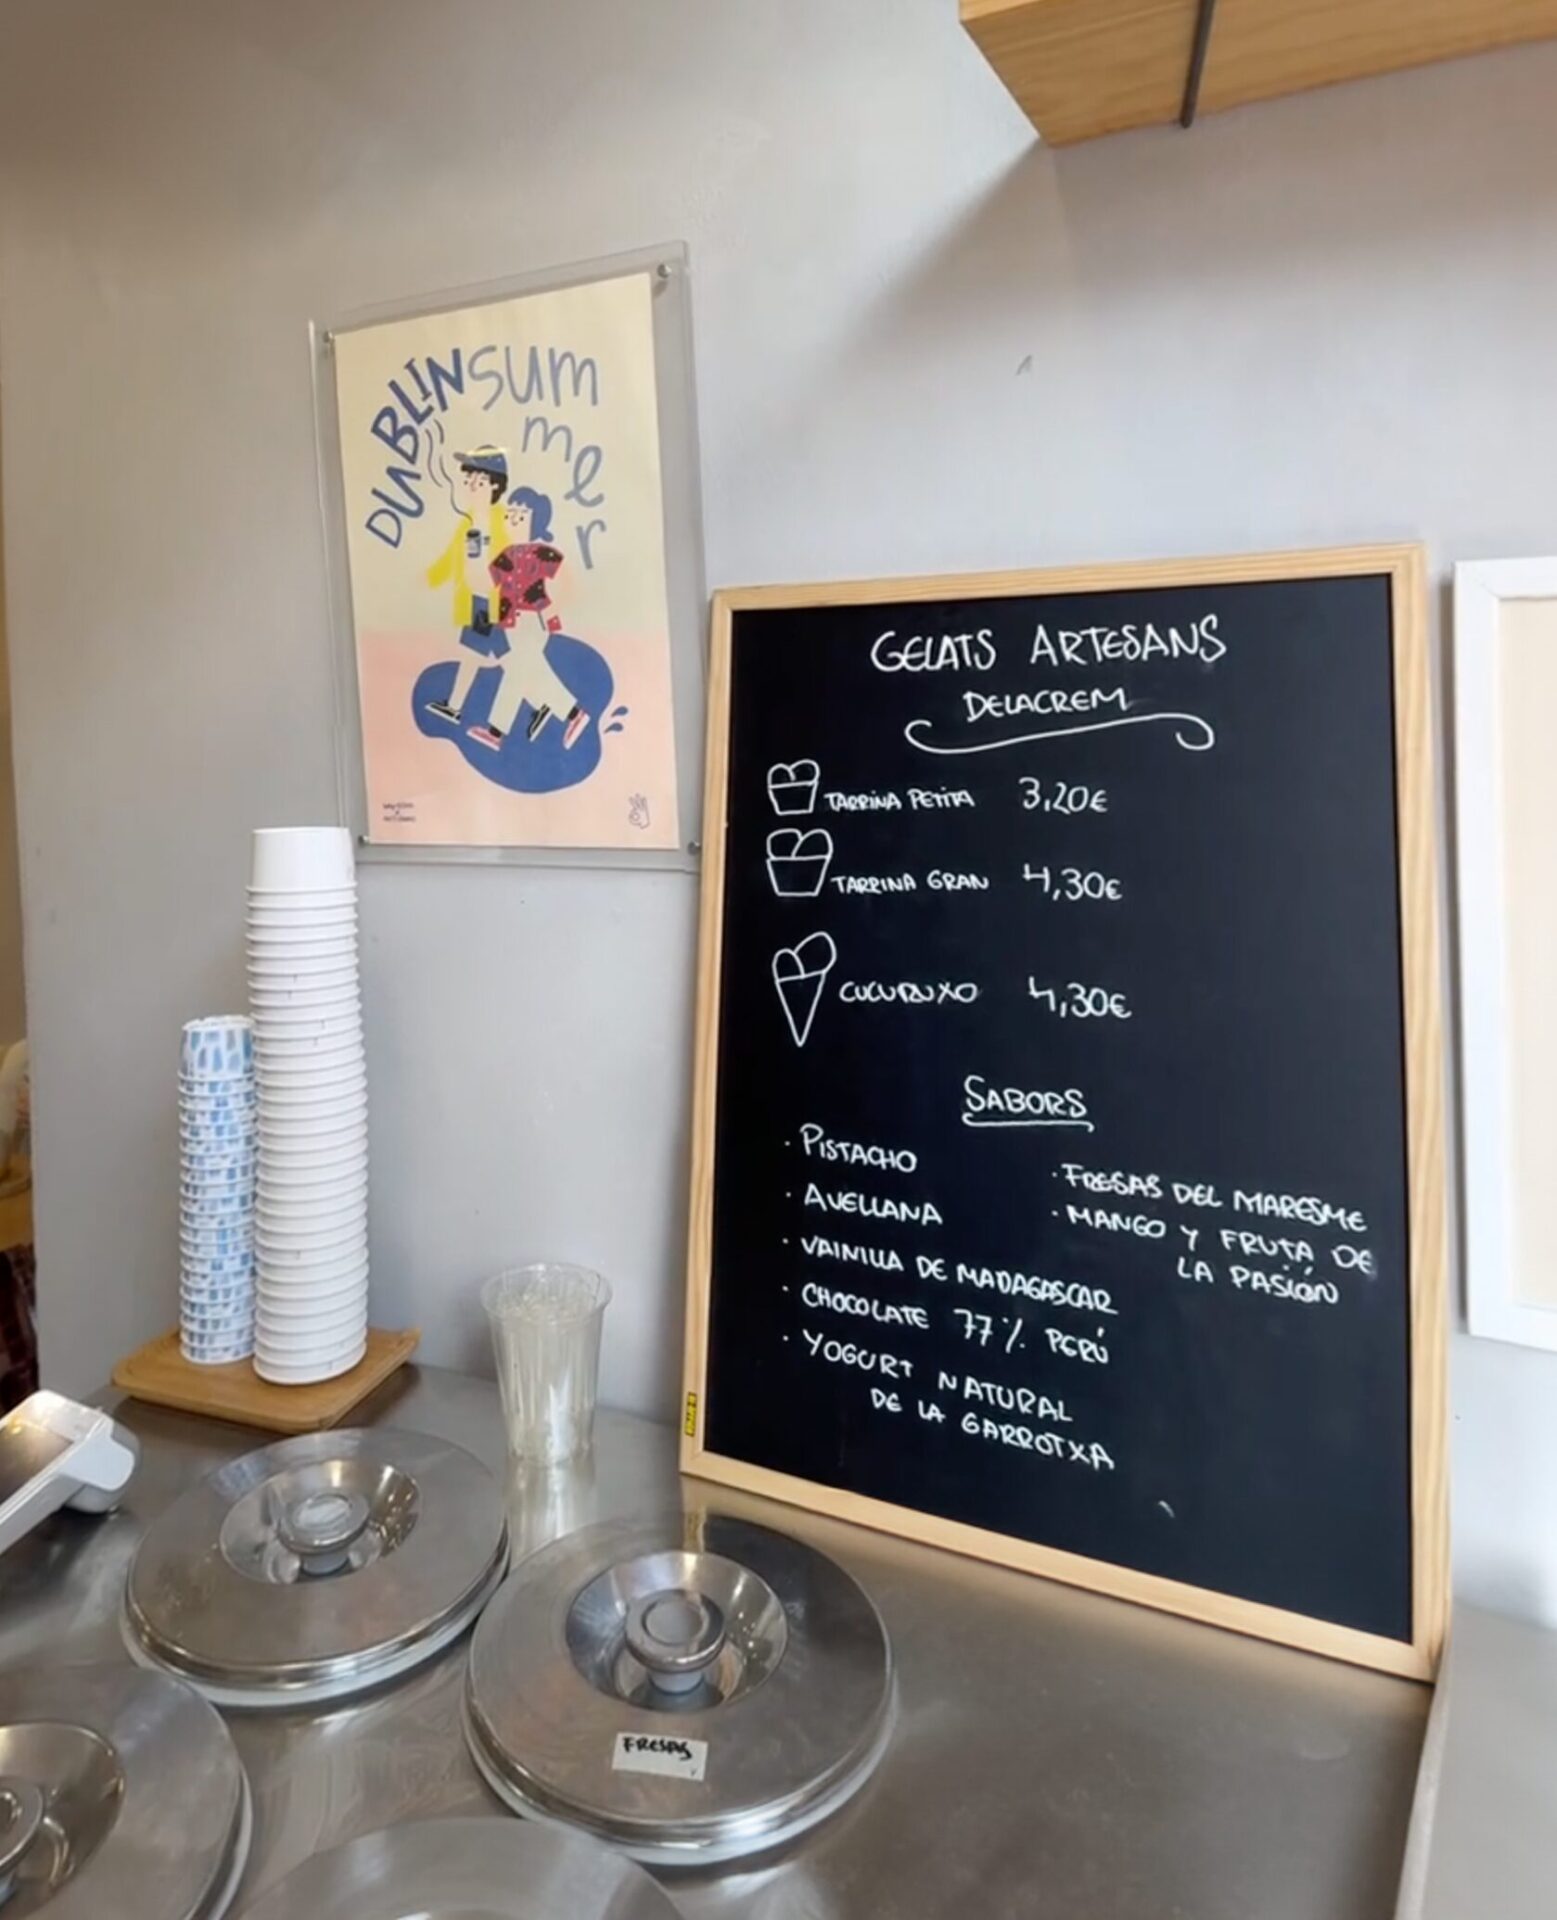 DUBLIN summer
GELATS ARTESANS
DELACREM
TARRINA PETITA 3,20€
TARRINA GRAN 4,30€
CUCURUXO 4,30€
SABORS
· PISTACHO
· AVELLANA
· VAINILLA DE MADAGASCAR
· CHOCOLATE 77% PERÚ
· YOGURT NATURAL
DE LA GARROTXA
· FRESAS DEL MARESME
· MANGO Y FRUTA DE
LA PASIÓN
FRESAS